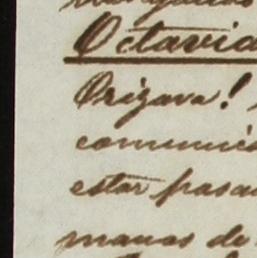 Octavia
Orizava!
comunic
estar pasa
manos de